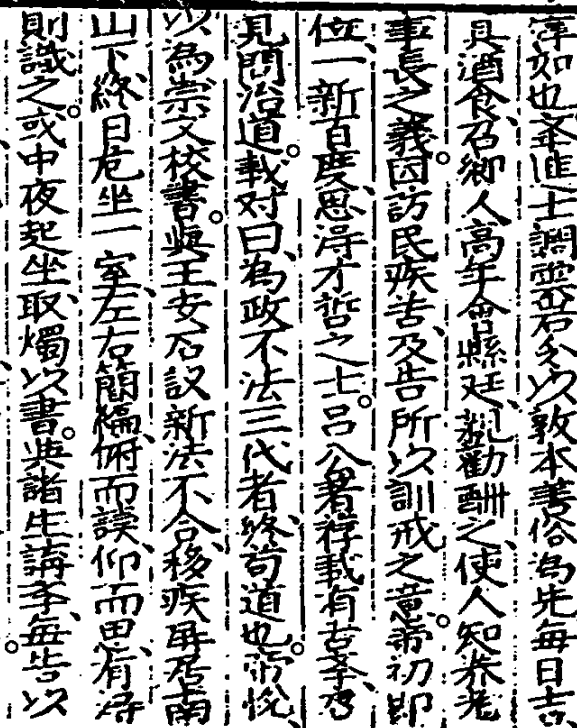 淳如也举進士調雲岩令以敦本善俗為先每日吉
具酒食、召鄉人高年會縣廷、親勸酬之、使人知养老
事長之義。因訪民疾苦、及告所以訓戒之意。帝初即
位、一新百度、思得才哲之士。吕公著荐載有古孝、召
見問治道。載对曰、為政不法三代者、終苟道也。帝悅、
以為崇文校書。與王安石议新法不合、移疾屏居南
山下、終日危坐一室、左右簡編、俯而讀、仰而思、有得
則識之。或中夜起坐、取燭以書。與諸生講孝、每告以